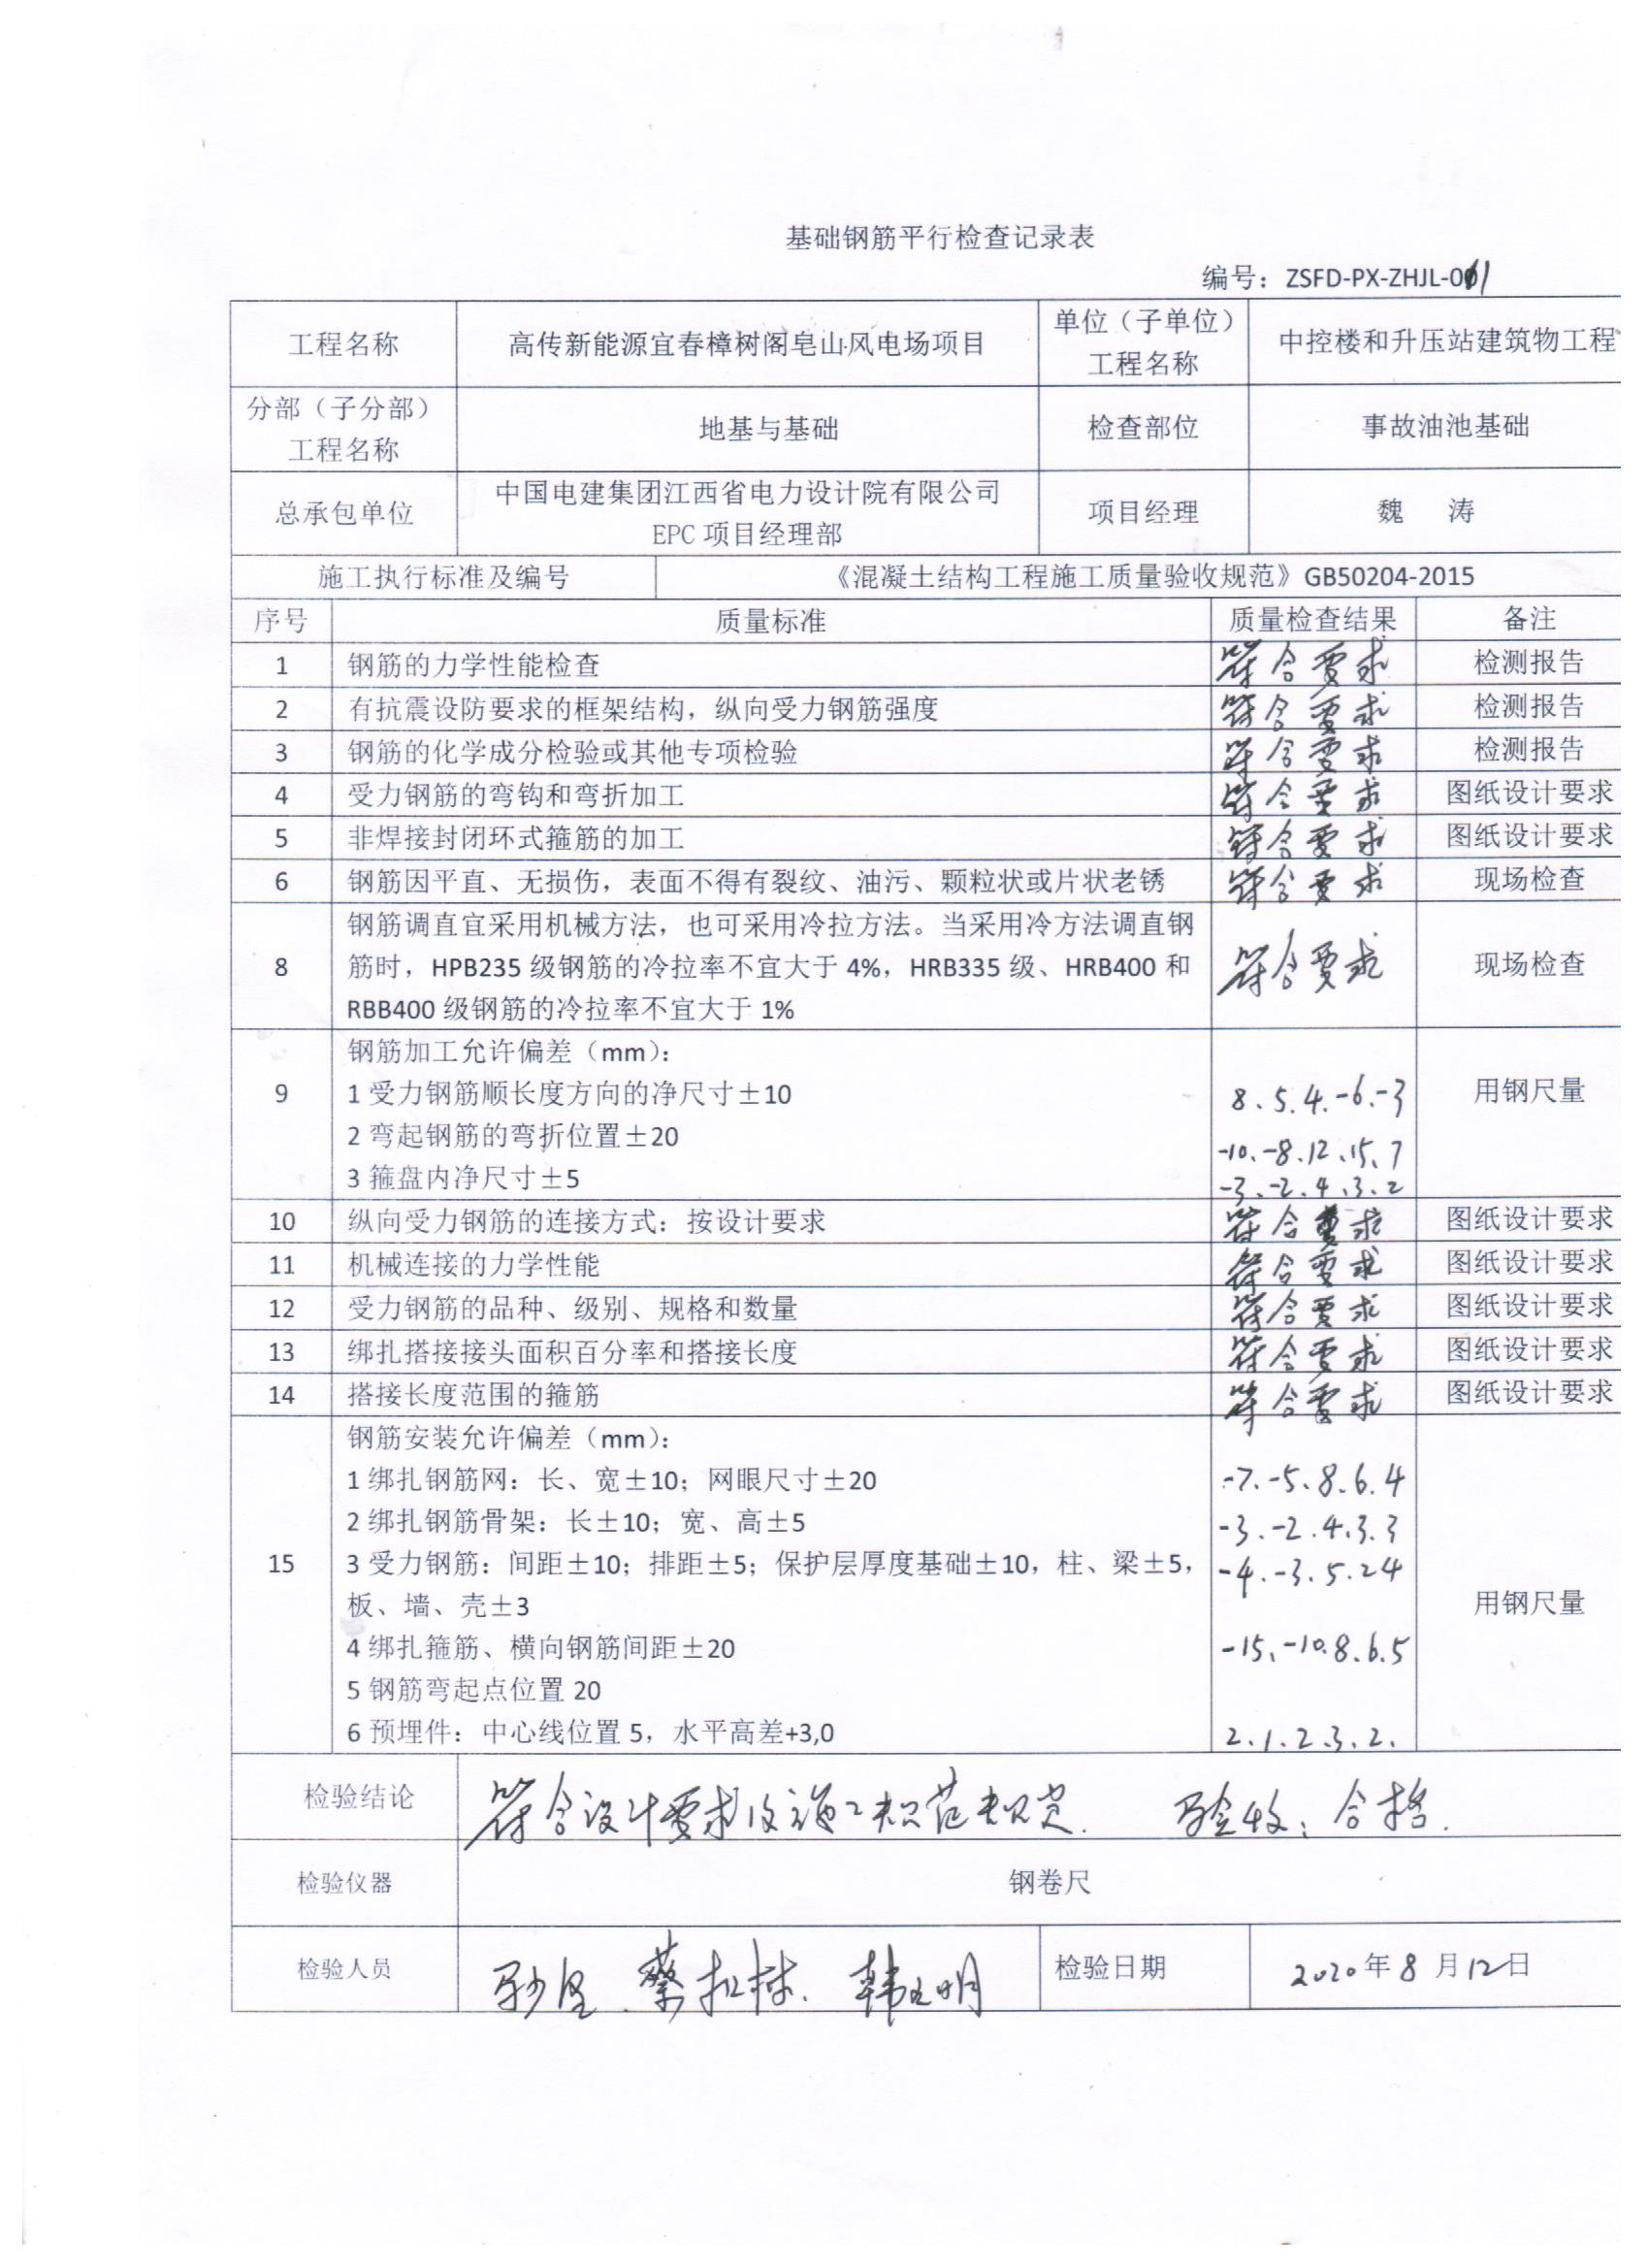 基础钢筋平行检查记录表
编号：ZSFD-PX-ZHJL-011
工程名称 高传新能源宜春樟树阁皂山风电场项目 单位（子单位）工程名称 中控楼和升压站建筑物工程
分部（子分部）工程名称 地基与基础 检查部位 事故油池基础
总承包单位 中国电建集团江西省电力设计院有限公司 EPC 项目经理部 项目经理 魏 涛
施工执行标准及编号 《混凝土结构工程施工质量验收规范》GB50204-2015
序号 质量标准 质量检查结果 备注
1 钢筋的力学性能检查 符合要求 检测报告
2 有抗震设防要求的框架结构，纵向受力钢筋强度 符合要求 检测报告
3 钢筋的化学成分检验或其他专项检验 符合要求 检测报告
4 受力钢筋的弯钩和弯折加工 符合要求 图纸设计要求
5 非焊接封闭环式箍筋的加工 符合要求 图纸设计要求
6 钢筋因平直、无损伤，表面不得有裂纹、油污、颗粒状或片状老锈 符合要求 现场检查
钢筋调直宜采用机械方法，也可采用冷拉方法。当采用冷方法调直钢
8 筋时，HPB235 级钢筋的冷拉率不宜大于 4%，HRB335 级、HRB400 和 符合要求 现场检查
RBB400 级钢筋的冷拉率不宜大于 1%
钢筋加工允许偏差（mm）：
9 1 受力钢筋顺长度方向的净尺寸±10 8、5、4、-6、-3 用钢尺量
2 弯起钢筋的弯折位置±20 -10、-8、12、15、7
3 箍盘内净尺寸±5 -3、-2、4、3、2
10 纵向受力钢筋的连接方式：按设计要求 符合要求 图纸设计要求
11 机械连接的力学性能 符合要求 图纸设计要求
12 受力钢筋的品种、级别、规格和数量 符合要求 图纸设计要求
13 绑扎搭接接头面积百分率和搭接长度 符合要求 图纸设计要求
14 搭接长度范围的箍筋 符合要求 图纸设计要求
钢筋安装允许偏差（mm）：
1 绑扎钢筋网：长、宽±10；网眼尺寸±20 -7、-5、8、6、4
2 绑扎钢筋骨架：长±10；宽、高±5 -3、-2、4、3、3
15 3 受力钢筋：间距±10；排距±5；保护层厚度基础±10，柱、梁±5， -4、-3、5、2 4
板、墙、壳±3 用钢尺量
4 绑扎箍筋、横向钢筋间距±20 -15、-10、8、6、5
5 钢筋弯起点位置 20
6 预埋件：中心线位置 5，水平高差+3,0 2、1、2、3、2、
检验结论 符合设计要求及施工规范规定. 验收：合格.
检验仪器 钢卷尺
检验人员 检验日期 2020 年 8 月 12 日